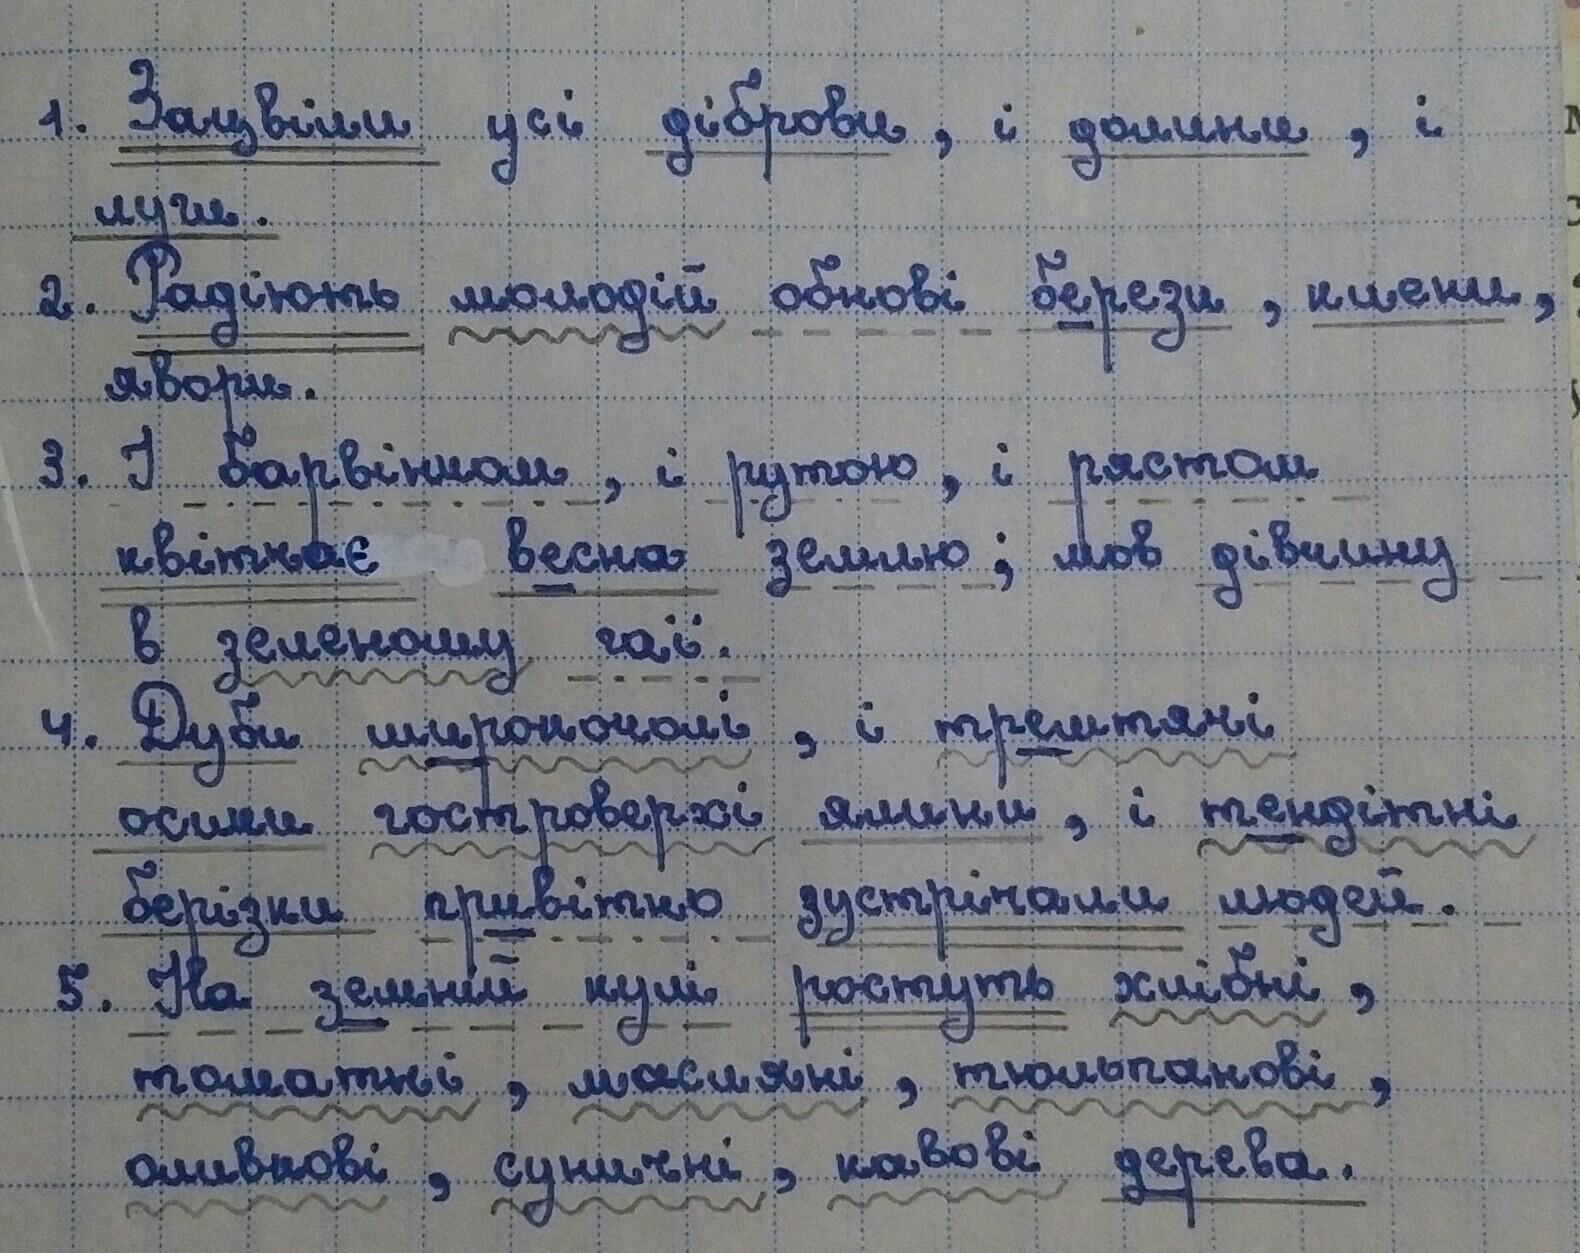 1. Зацвіли усі діброви, і долини, і
луги.
2. Радіють молодій обнові берези, клени,
явори.
3. І барвінком, і рутою, і рястом
квітчає весна землю; мов дівчину
в зеленому гаї.
4. Дуби широкочолі, і трептячі
осики гостроверхі ялини, і тендітні
берізки привітно зустрічали людей.
5. На земній кулі ростуть хлібні,
томатні, масляні, тюльпанові,
оливкові, суничні, кавові дерева.